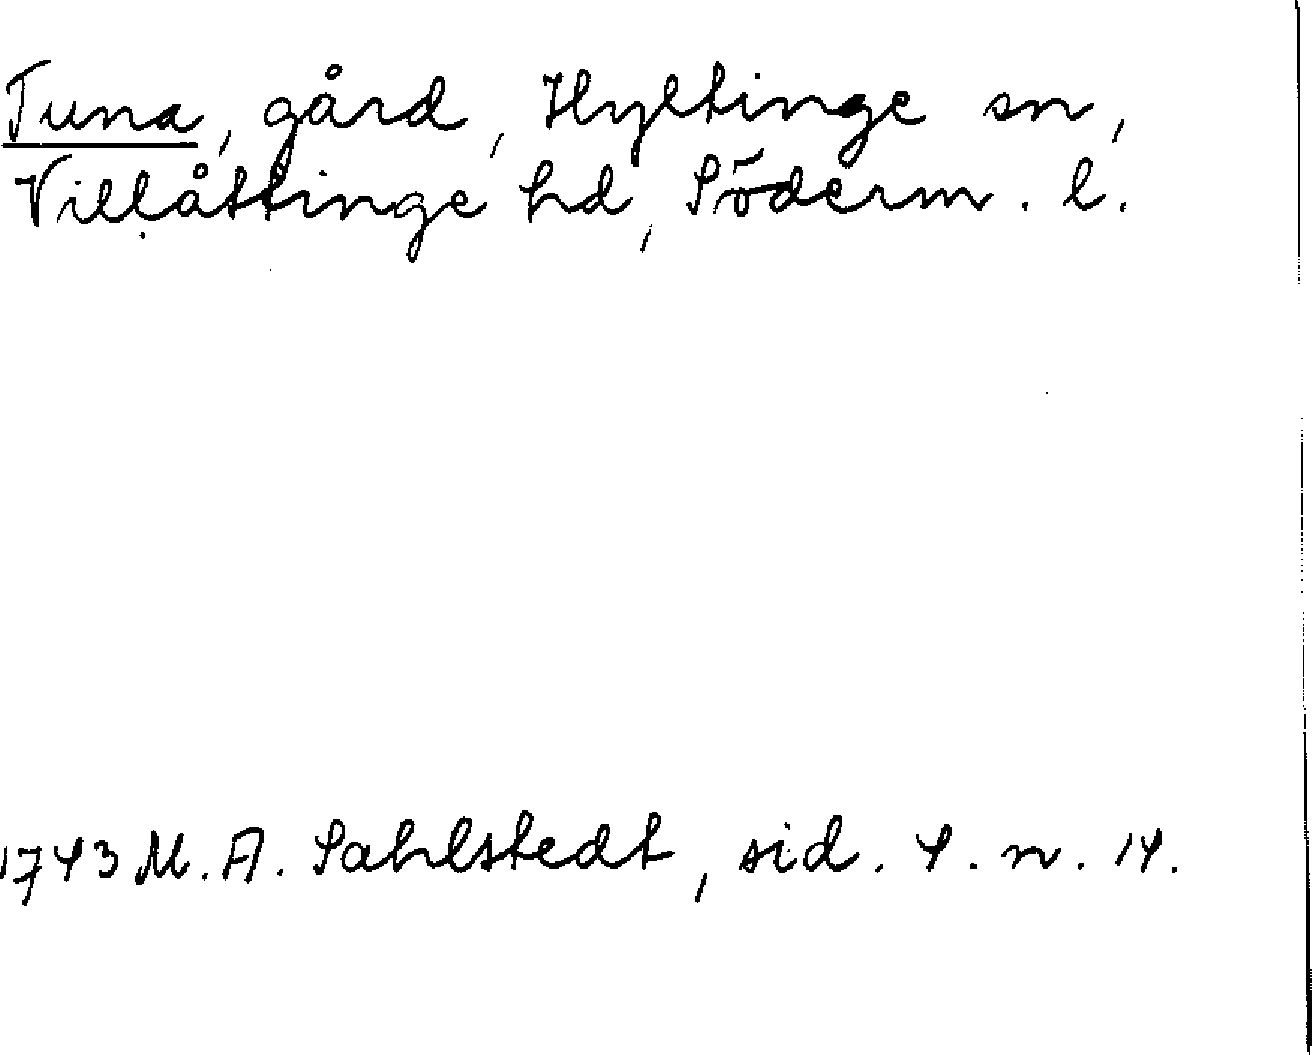 Tuna, gård, Hyltinge sn,
Villåttinge hd, Söderm. l.
1743 M. A. Sahlstedt, sid. 4. n. 14.